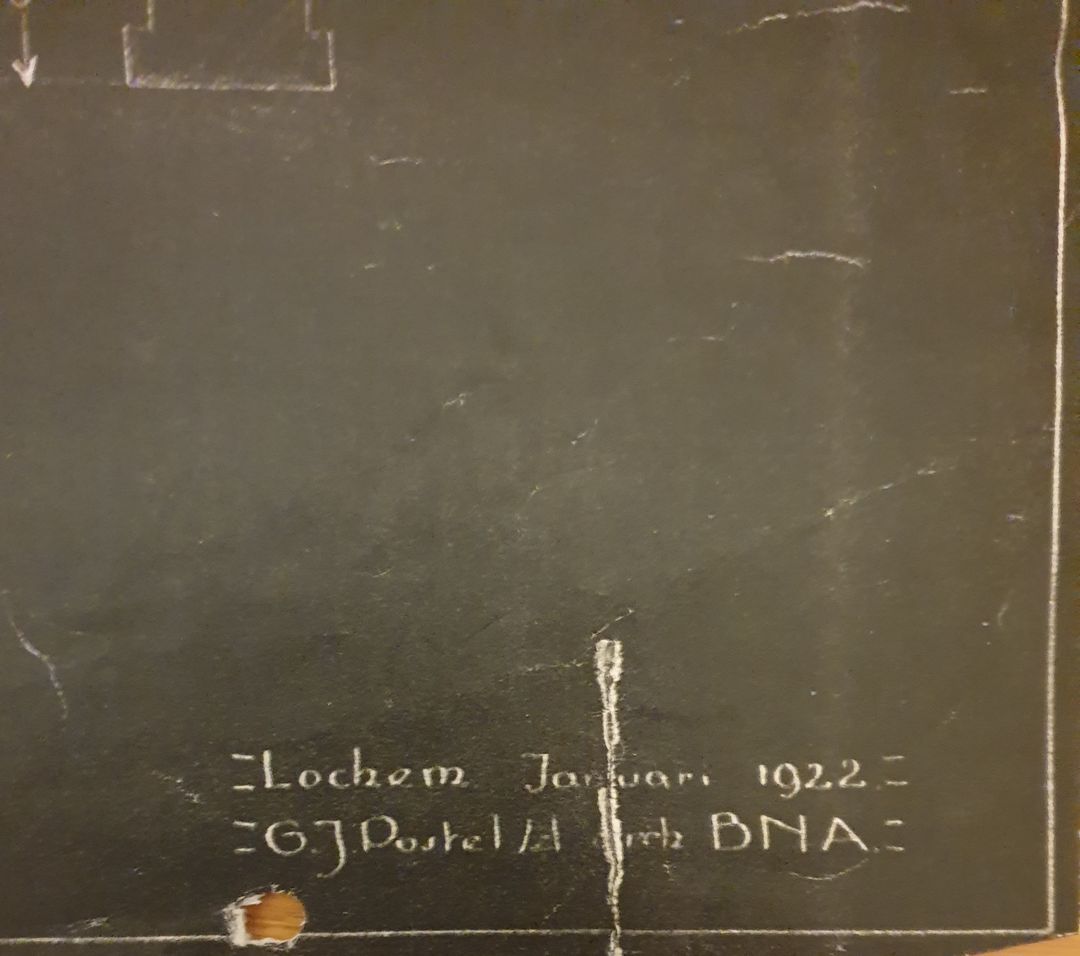 =Lochem Januari 1922.=
=G.J. Postel Hzn arch BNA.=